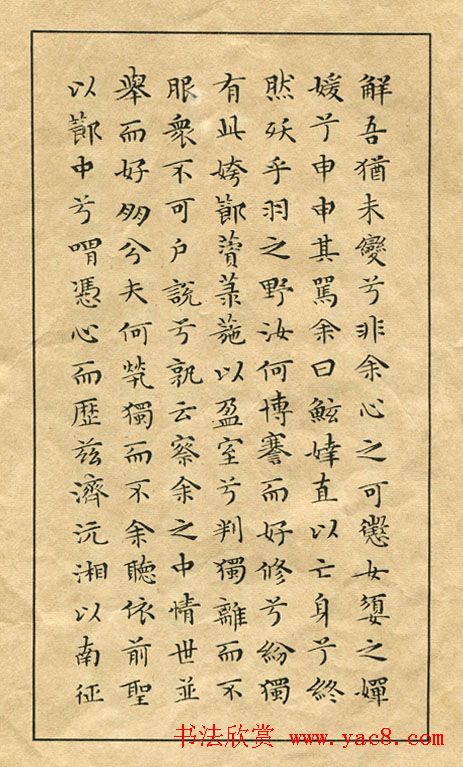 觧吾猶未變兮非余心之可懲女嬃之嬋
媛兮申申其罵余曰鮌婞直以亡身兮終
然殀乎羽之野汝何博謇而好修兮紛獨
有此姱節薋菉葹以盈室兮判獨離而不
服眾不可戶說兮孰云察余之中情世並
舉而好朋兮夫何煢獨而不余聽依前聖
以節中兮喟憑心而歷茲濟沅湘以南征
书法欣赏 www.yac8.com